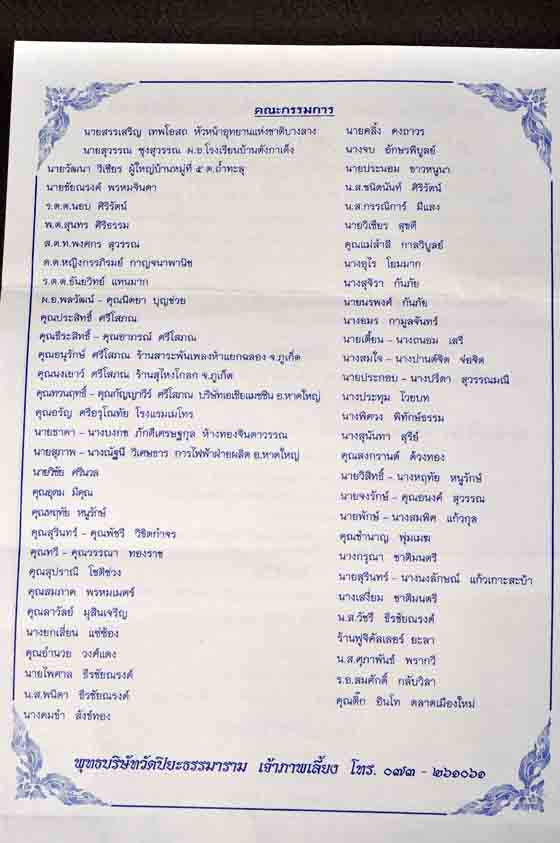 คณะกรรมการ
นายสรรเสริญ เทพโอสถ หัวหน้าอุทยานแห่งชาติบางลาง
นายสุวรรณ ชุงสุวรรณ ผ.อ.โรงเรียนบ้านตังกาเด็ง
นายวัฒนา วิเชียร ผู้ใหญ่บ้านหมู่ที่ ๕ ต.ถ้ำทะลุ
นายชัยณรงค์ พรหมจินดา
ร.ต.ต.นอบ ศิริรัตน์
พ.ต.สุนทร ศิริธรรม
ส.ต.ท.พงศกร สุวรรณ
ด.ต.หญิงกรรภิรมย์ กาญจนาพานิช
ร.ต.ต.ธันยวิทย์ แทนมาก
ผ.อ.พลวัฒน์ - คุณนิตยา บุญช่วย
คุณประสิทธิ์ ศรีโสภณ
คุณธีระสิทธิ์ - คุณอาภรณ์ ศรีโสภณ
คุณอนุรักษ์ ศรีโสภณ ร้านสาระพันเพลงห้าแยกฉลอง จ.ภูเก็ต
คุณนงเยาว์ ศรีโสภณ ร้านสุไหงโกลก จ.ภูเก็ต
คุณทวนฤทธิ์ - คุณกัญญาวีร์ ศรีโสภณ บริษัทเอเชียแมชชีน อ.หาดใหญ่
คุณอรัญ ศรีอรุโณทัย โรงแรมเมโทร
นายธาดา - นางบงกช ภักดีเศรษฐกุล ห้างทองจินดาวรรณ
นายสุภาพ - นางณัฐนี วิเศษธาร การไฟฟ้าฝ่ายผลิต อ.หาดใหญ่
นายวิชัย ศรีนวล
คุณอุดม มีคุณ
คุณหฤทัย หนูรักษ์
คุณสุรินทร์ - คุณพัชรี วิชิตกำจร
คุณทวี - คุณวรรณา ทองราช
คุณสุปราณี โชติช่วง
คุณสมภาค พรหมเมศร์
คุณลาวัลย์ มุสินเจริญ
นางยกเสี่ยน แซ่ซ้อง
คุณอำนวย วงศ์แดง
นายไพศาล ธีรชัยณรงค์
น.ส.พนิดา ธีรชัยณรงค์
นางคมขำ สังข์ทอง
นายคลิ้ง คงถาวร
นางจบ อักษรพิบูลย์
นายประนอม ขาวหนูนา
น.ส.ชนิตนันท์ ศิริรัตน์
น.ส.กรรณิการ์ มีแสง
นายวิเชียร สุขดี
คุณแม่ลำลี กาลวิบูลย์
นางอุไร โยมมาก
นางสุจิรา กันภัย
นายนรพงศ์ กันภัย
นางอมร กามูลจันทร์
นายเตี้ยน - นางถนอม เสรี
นางสมใจ - นางปานต์จิต จ่อชิต
นายประกอบ - นางปรีดา สุวรรณมณี
นางประทุม ไวยบท
นางพิศวง พิทักษ์ธรรม
นางสุนันทา สุรีย์
คุณสงกรานต์ ด้วงทอง
นายวิสิทธิ์ - นางหฤทัย หนูรักษ์
นายจงรักษ์ - คุณอนงค์ สุวรรณ
นายพักษ์ - นางสมพิศ แก้วกุล
คุณชำนาญ พุ่มเมฆ
นางกรุณา ชาติมนตรี
นายสุรินทร์ - นางนงลักษณ์ แก้วเกาะสะบ้า
นางเสงี่ยม ชาติมนตรี
น.ส.วัชรี ธีรชัยณรงค์
ร้านฟูจิคัลเลอร์ ยะลา
น.ส.ศุภาพันธ์ พรากวี
ร.อ.สมศักดิ์ กลับวิลา
คุณติ๊ก อินโท ตลาดเมืองใหม่
พุทธบริษัทวัดปิยะธรรมาราม เจ้าภาพเลี้ยง โทร. ๐๗๓ - ๒๖๑๐๖๑